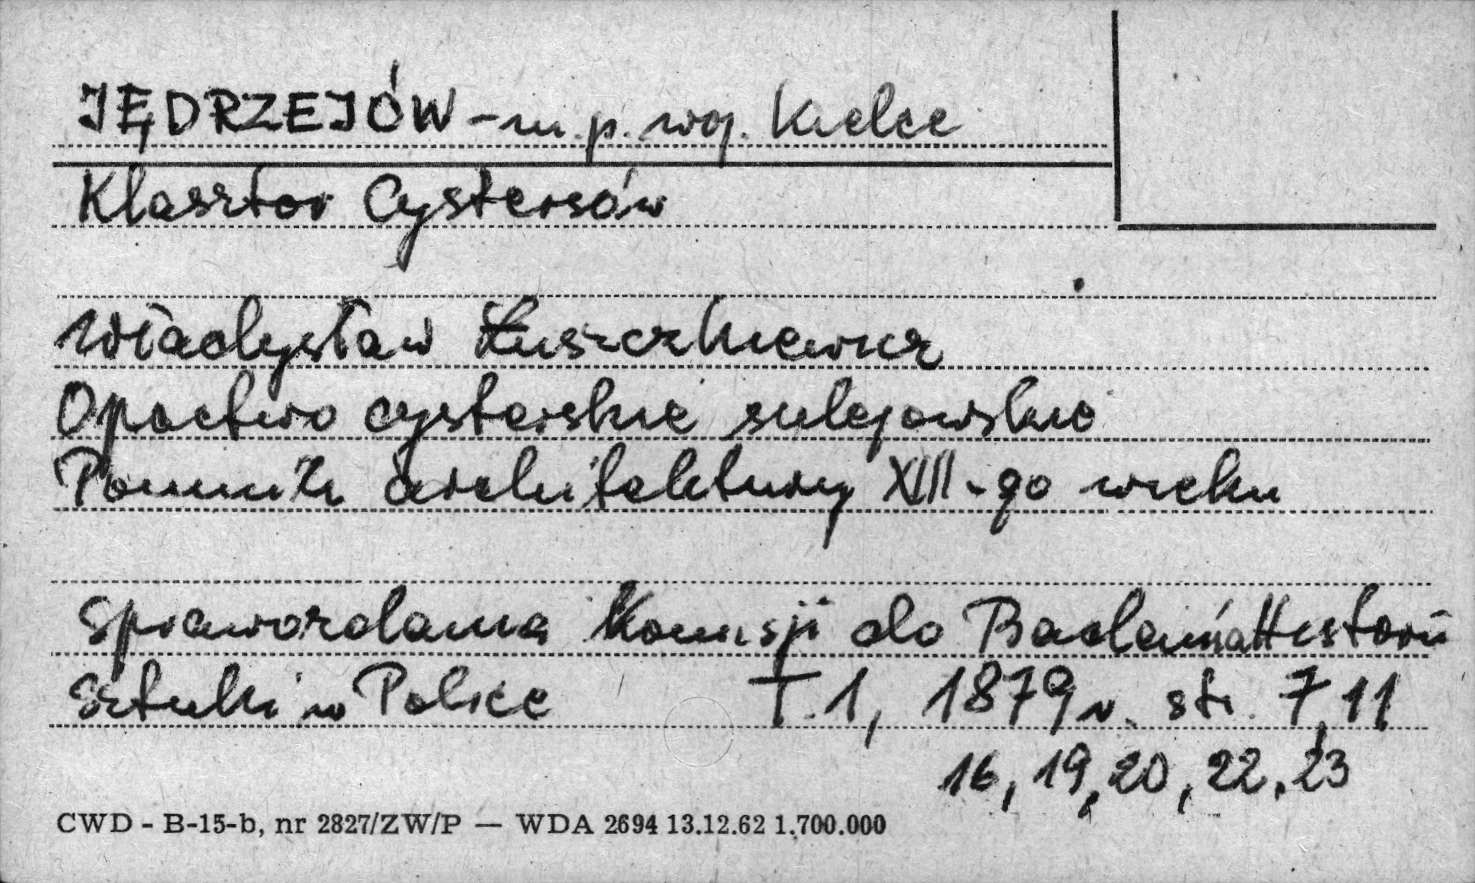 JĘDRZEJÓW - m. p. woj. Kielce
Klasztor Cystersów
Władysław Łuszczkiewicz
Opactwo cysterskie sulejowskie
Pomnik architektury XIII-go wieku
Sprawozdania Komisji do Badania Historii
Sztuki w Polsce T. 1, 1879 r. str. 7, 11
16, 19, 20, 22, 23
CWD - B-15-b, nr 2827/ZW/P — WDA 2694 13.12.62 1.700.000